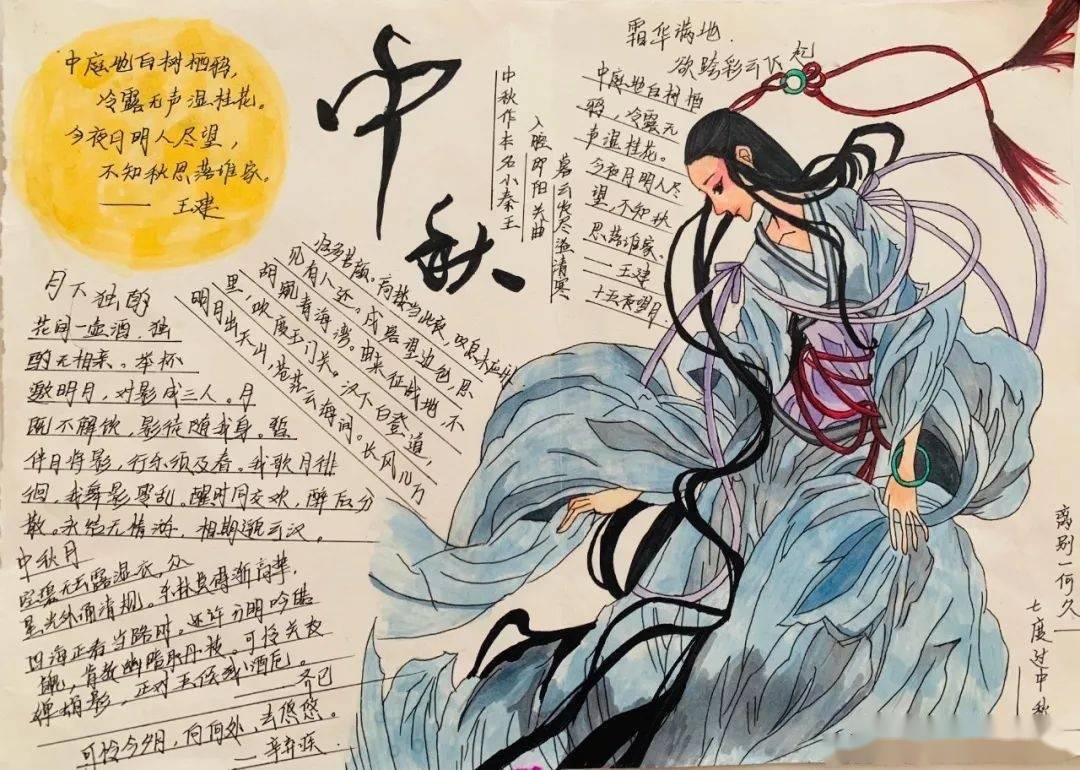 中庭地白树栖鸦，
冷露无声湿桂花。
今夜月明人尽望，
不知秋思落谁家。
—— 王建
中秋
中秋作本名小秦王
入腔即阳关曲
暮云收尽溢清寒
霜华满地.
欲跨彩云飞起
中庭地白树栖
鸦，冷露无
声湿桂花。
今夜月明人尽
望，不知秋
思落谁家。
——王建
十五夜望月
月下独酌
花间一壶酒，独
酌无相亲。举杯
邀明月，对影成三人。月
既不解饮，影徒随我身。暂
伴月将影，行乐须及春。我歌月徘
徊，我舞影零乱。醒时同交欢，醉后分
散。永结无情游，相期邈云汉。
明月出天山，苍茫云海间。长风几万
里，吹度玉门关。汉下白登道，
胡窥青海湾。由来征战地，不
见有人还。戍客望边色，思
归多苦颜。高楼当此夜，叹息未应
中秋月
空碧无云露湿衣，众
星光外涌清规。东林
四海正看当路时。还许分明吟皓
魄，肯教幽暗取丹枝。可怜关夜
婵娟影，正对五侯残酒卮。
——齐己
可怜今夕月，向何处、去悠悠。
——辛弃疾.
离别一何久
七度过中秋